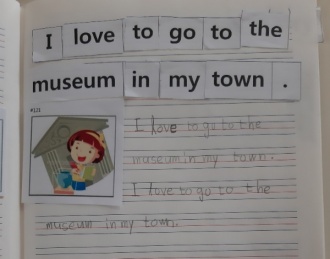 I love to go to the
museum in my town .
#121
I love to go to the
museum in my town.
I love to go to the
museum in my town.